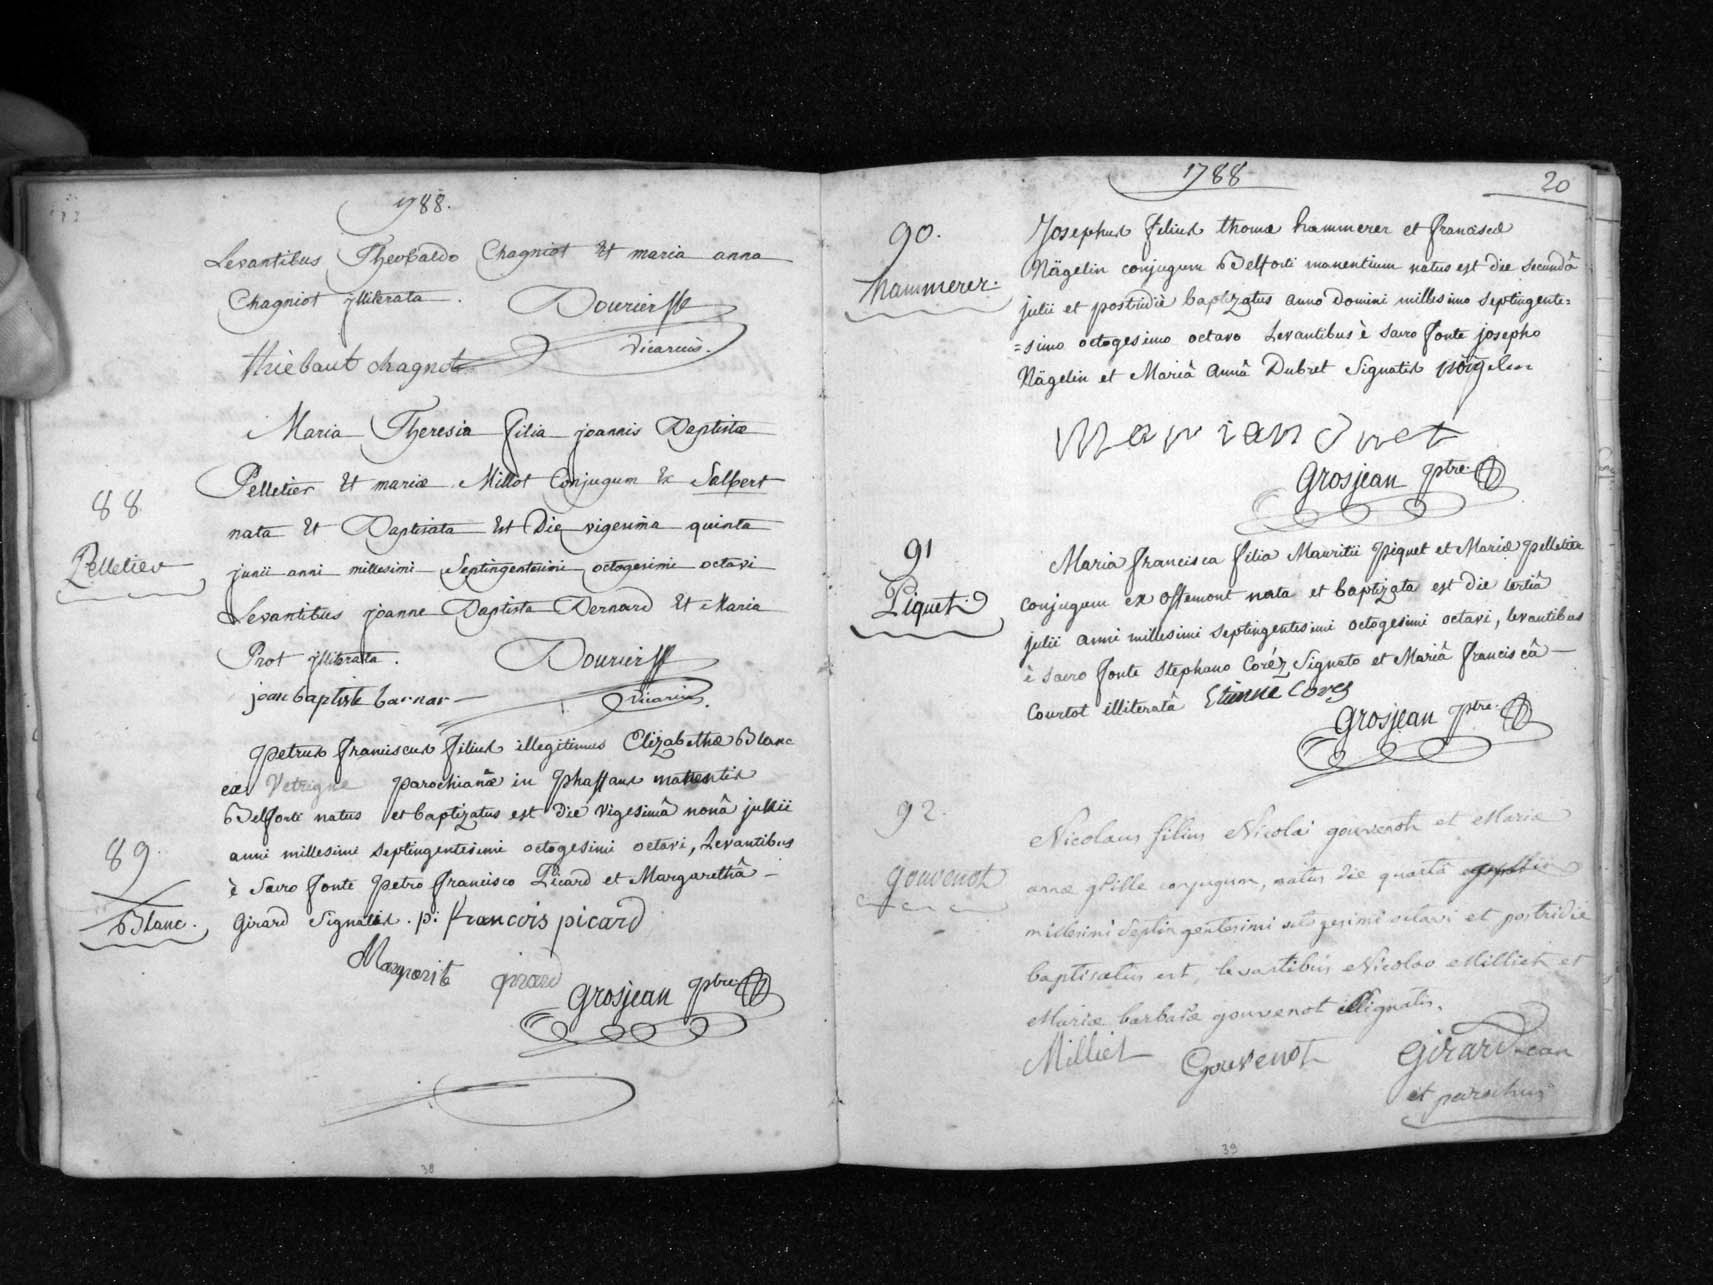 1788.
Levantibus Theobaldo Chagniot Et maria anna
Chagniot jlliterata. Dourier ptr
vicarius.
thiebaut chagnot
88
Pelletier
Maria Theresia filia joannis Baptistæ
Pelletier Et mariæ Millot Conjugum Ex Salbert
nata Et Baptisata Est Die vigesima quinta
junii anni millesimi Septingentesimi octogesimi octavi
Levantibus joanne Baptista Bernard Et Maria
Prot jlliterata. Dourier
vicarius.
jean baptiste barnar
89
Blanc.
Petrus franciscus filius illegitimus Elizabethæ Blanc
ex Vetrigne parochianæ in Phaffans manentis
Belforti natus et baptizatus est die vigesimâ nonâ junii
anni millesimi septingentesimi octogesimi octavi, Levantibus
è Sacro fonte Petro francisco Picard et Margarethâ
Girard Signatis. p. francois picard
Margarite girard
Grosjean ptre.
38
1788
20
90.
hammerer.
Josephus filius thomæ hammerer et franciscæ
Nägelin conjugum Belforti manentium natus est die secundâ
julii et postridiè baptizatus anno Domini millesimo septingente=
=simo octogesimo octavo Levantibus è sacro fonte josepho
Nägelin et Mariâ Annâ Dubret Signatis nögelin
Grosjean ptre.
91
Piquet.
Maria francisca filia Mauritii Piquet et Mariæ Pelletier
conjugum ex offemont nata et baptizata est die tertiâ
julii anni millesimi septingentesimi octogesimi octavi, levantibus
è sacro fonte stephano Coréz Signato et Mariâ franciscâ
Courtot illiteratâ Etienne Corez
Grosjean ptre.
92.
gouvenot
Nicolaus filius Nicolai gouvenot et Mariæ
annæ conjugum, natus die quartâ
millesimi septingentesimi octogesimi octavi et postridie
baptisatus est, levantibus Nicolao Milliet et
Mariæ barbaræ gouvenot signatis.
Milliet Gouvenot Girard
et parochus
39